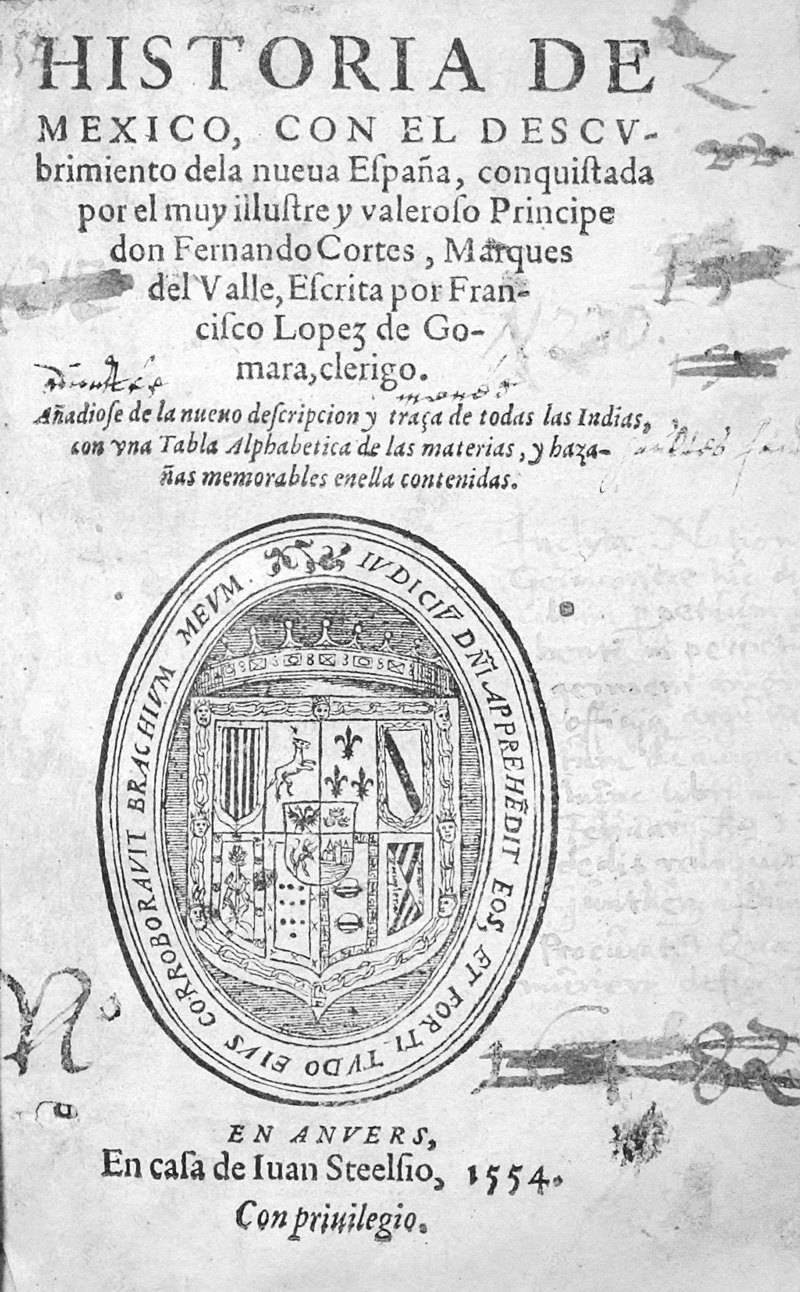 HISTORIA DE
MEXICO, CON EL DESCV-
brimiento dela nueua Eſpaña, conquiſtada
por el muy illuſtre y valeroſo Principe
don Fernando Cortes, Marques
del Valle, Eſcrita por Fran-
ciſco Lopez de Go-
mara, clerigo.
Añadioſe de la nueuo deſcripcion y traça de todas las Indias,
con vna Tabla Alphabetica de las materias, y haza-
ñas memorables enella contenidas.
IVDICIṼ DÑI APPREHẼDIT EOS, ET FORTITVDO EIVS CORROBORAVIT BRACHIVM MEVM.
EN ANVERS,
En caſa de Iuan Steelſio, 1554.
Con priuilegio.